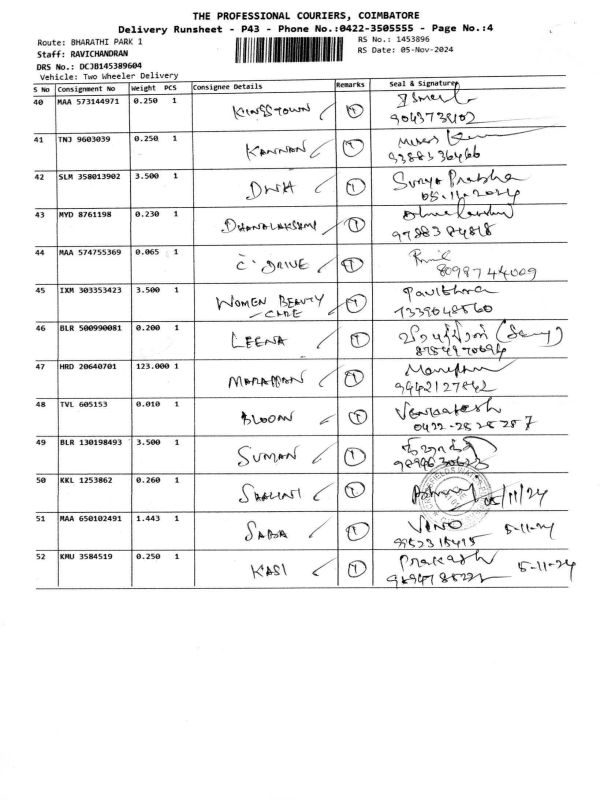 THE PROFESSIONAL COURIERS, COIMBATORE
Delivery Runsheet - P43 - Phone No.:0422-3505555 - Page No.:4
Route: BHARATHI PARK 1
RS No.: 1453896
Staff: RAVICHANDRAN
RS Date: 05-Nov-2024
DRS No.: DCJB145389604
Vehicle: Two Wheeler Delivery
S No Consignment No Weight PCS Consignee Details Remarks Seal & Signature
40 MAA 573144971 0.250 1 KINGSTOWN
9043738102
41 TNJ 9603039 0.250 1 KANNAN
9388536466
42 SLM 358013902 3.500 1 DWH Surya Prabha
05.11.2024
43 MYD 8761198 0.230 1 DHANALAKSHMI
9788384818
44 MAA 574755369 0.065 1 C-DRIVE
8098744009
45 IXM 303353423 3.500 1 WOMEN BEAUTY
CARE
7339048560
46 BLR 500990081 0.200 1 LEENA
8754970694
47 HRD 20640701 123.000 1
9442127842
48 TVL 605153 0.010 1 Venkatesh
0422-2525257
49 BLR 130198493 3.500 1 SUMAN
9894630623
50 KKL 1253862 0.260 1 SHALINI 05/11/24
51 MAA 650102491 1.443 1 VINO 5-11-24
9952315415
52 KMU 3584519 0.250 1 KASI Prakash 5-11-24